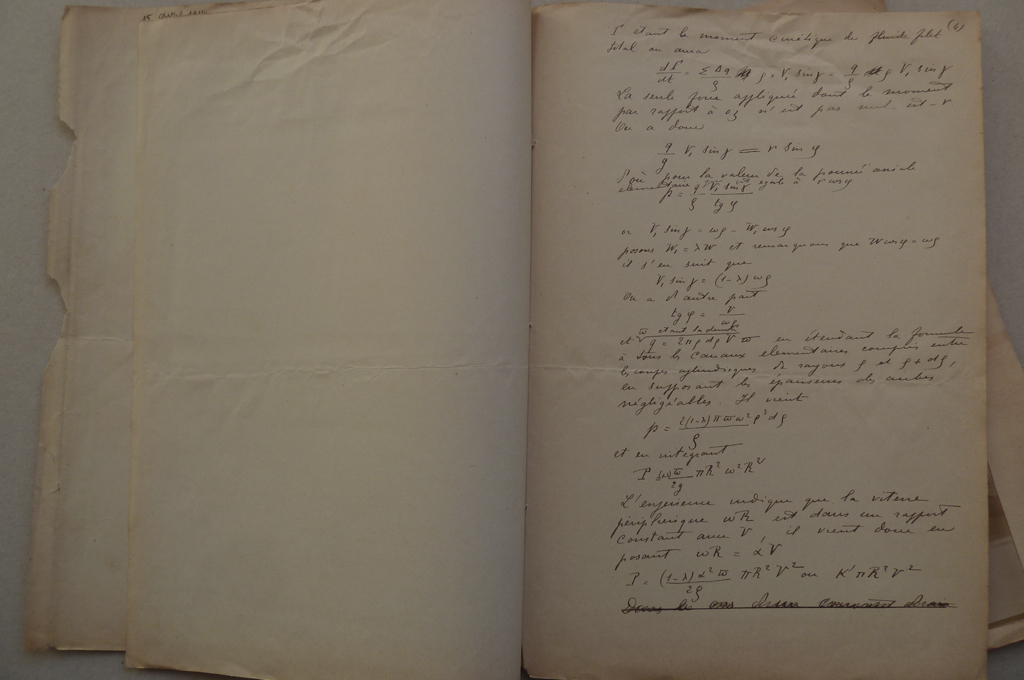 15 avril
(6)
Γ étant le moment cinétique du fluide filet
total on aura
dΓ/dt = Σ Δq/g ρ V₁ sin γ = q/g ρ V₁ sin γ
La seule force appliquée dont le moment
par rapport à oz n'est pas nul est - r
On a donc
q/g V₁ sin γ = r sin φ
D'où pour la valeur de la poussée axiale
elementaire égale à r cos φ
p = q/g V₁ sin γ / tg φ
or V₁ sin γ = ωρ - W₁ cos φ
posons W₁ = λW et remarquons que W cos φ = ωρ
il s'en suit que
V₁ sin γ = (1-λ) ωρ
On a d'autre part
tg φ = V/ωρ
ϖ étant la densité
et q = 2πρ dρ V ϖ en étendant la formule
à tous les canaux elementaires compris entre
les coupes cylindriques de rayons ρ et ρ + dρ,
en supposant les épaisseurs des aubes
négligeables. Il vient
p = 2(1-λ) π ϖ ω² ρ³ dρ / g
et en intégrant
P = ϖ/2g πR² ω²R²
L'experience indique que la vitesse
périphérique ωR est dans un rapport
constant avec V, il vient donc en
posant ωR = αV
P = (1-λ) α² ϖ / 2g πR² V² ou K' πR² V²
Dans le cas